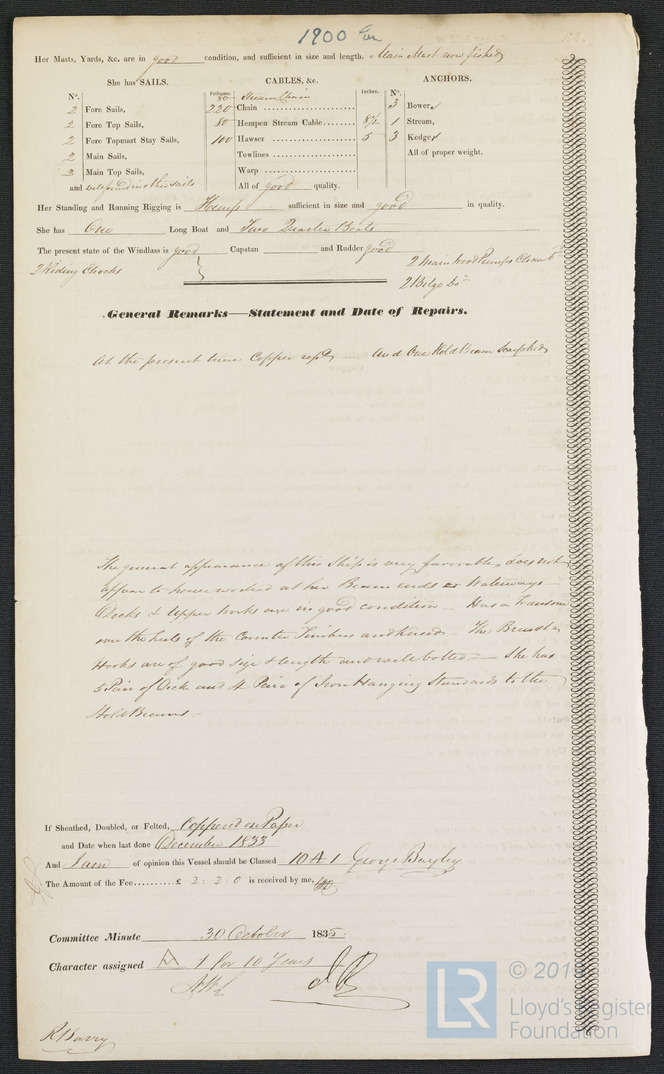 1900 Lon
Her Masts, Yards, &c. are in good condition, and sufficient in size and length. Main Mast now fished
She has SAILS.
N°.
2 Fore Sails,
2 Fore Top Sails,
2 Fore Topmast Stay Sails,
2 Main Sails,
2 Main Top Sails,
and well found in other sails
CABLES, &c.
Fathoms. Inches.
80 Stream Chain
220 Chain
80 Hempen Stream Cable 8½
100 Hawser 5
Towlines
Warp
All of good quality.
ANCHORS.
N°.
3 Bowers
1 Stream,
3 Kedges
All of proper weight.
Her Standing and Running Rigging is Hemp sufficient in size and good in quality.
She has One Long Boat and Two Quarter Boats
The present state of the Windlass is good Capstan and Rudder good
2 Riding Chocks
2 main wood Pumps
2 Bilge Do
General Remarks—Statement and Date of Repairs.
At the present time Copper repd — And One Hold Beam Scarphed
The general appearance of this Ship is very favorable, does not
appear to have worked at her Beam ends or Waterways —
Decks & Upper works are in good condition — Has a Transom
over the heels of the Counter Timbers and kneed — The Breast
Hooks are of good size & length and well bolted — She has
5 Pair of Deck and 4 Pair of Iron Hanging Standards to the
Hold Beams —
If Sheathed, Doubled, or Felted, Coppered on Paper
and Date when last done December 1833
And I am of opinion this Vessel should be Classed 10 A 1 George Bayley
The Amount of the Fee £ 2 : 2 : 0 is received by me,
Committee Minute 30 October 1835
Character assigned A 1 for 10 Years
LR
© 2019
Lloyd's Register
Foundation